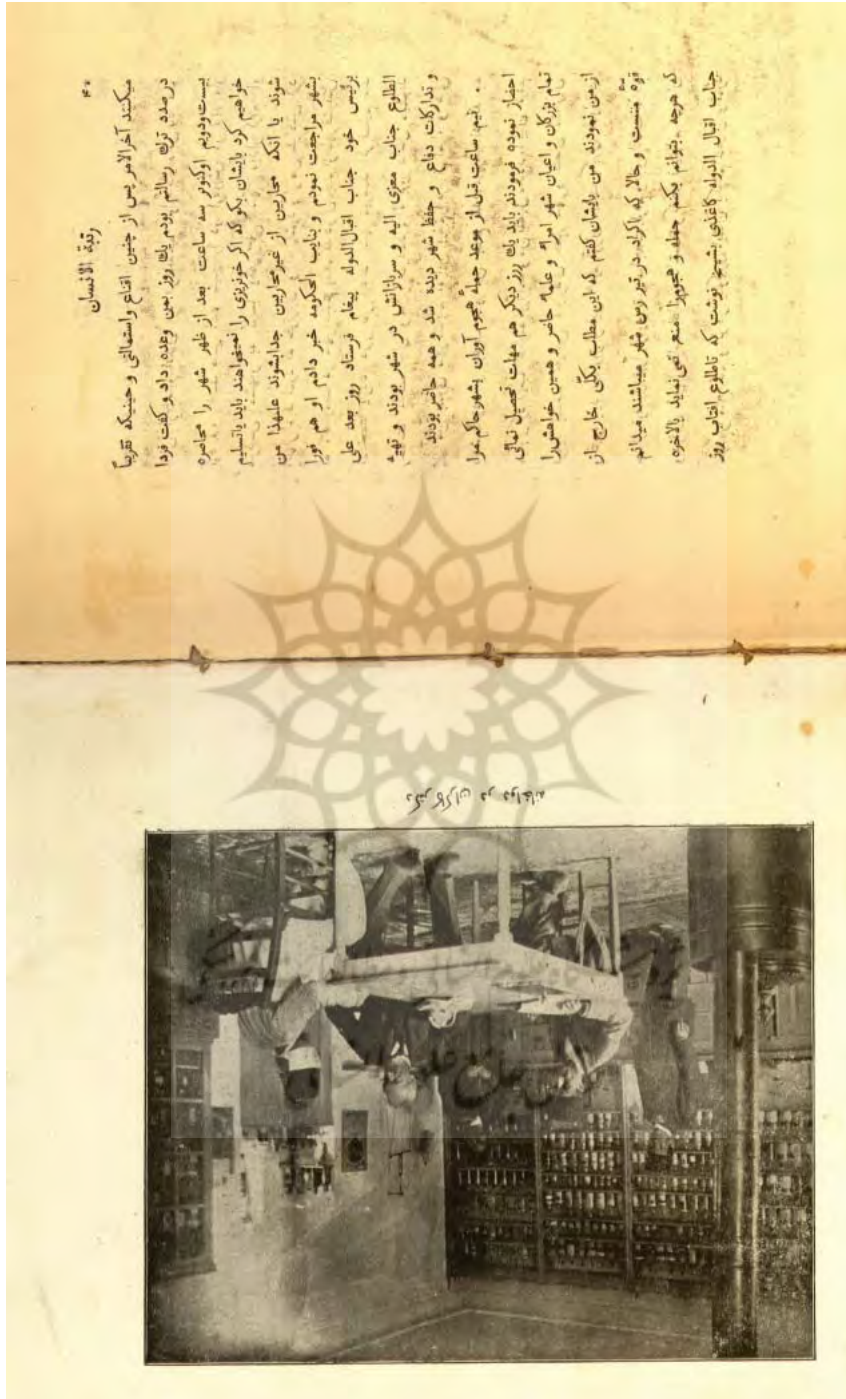 ۴۰
رتبة الانسان
میکنند آخرالامر پس از چنین اقناع واستمالتی و حینیکه تقریباً
در صدد ترك رسالتم بودم یك روز بمن وعده داد و کفت فردا
بیست‌ودویم اوکتوبر سه ساعت بعد از ظهر شهر را محاصره
خواهیم کرد بایشان بکو که اکر خونریزی را نمیخواهند باید یاتسلیم
شوند یا آنکه محاربین از غیرمحاربین جداشوند علیهذا من
بشهر مراجعت نمودم و بنایب الحکومه خبر دادم او هم فوراً
برئیس خود جناب اقبال‌الدوله پیغام فرستاد روز بعد علی
الطلوع جناب معزی الیه و سربازانش در شهر بودند و تهیهٔ
و تدارکات دفاع و حفظ شهر دیده شد و همه حاضر بودند
نیم ساعت قبل از موعد حملهٔ هجوم آوران بشهر حاکم مرا
احضار نموده فرمودند باید یك روز دیکر هم مهلت تحصیل نمائی
تمام بزرکان و اعیان شهر امراء و علماء حاضر و همین خواهش را
از من نمودند من بایشان کفتم که این مطالب بکلّی خارج از
قوّهٔ منست و حالا که اکراد در تیر زس شهر میباشند میدانم
که هرچه بتوانم بکنم حمله و هجومرا منع نمی‌نماید بالاخره
جناب اقبال الدوله کاغذی بشیخ نوشت که تاطلوع افتاب روز
دکتر کاکران در دواخانه